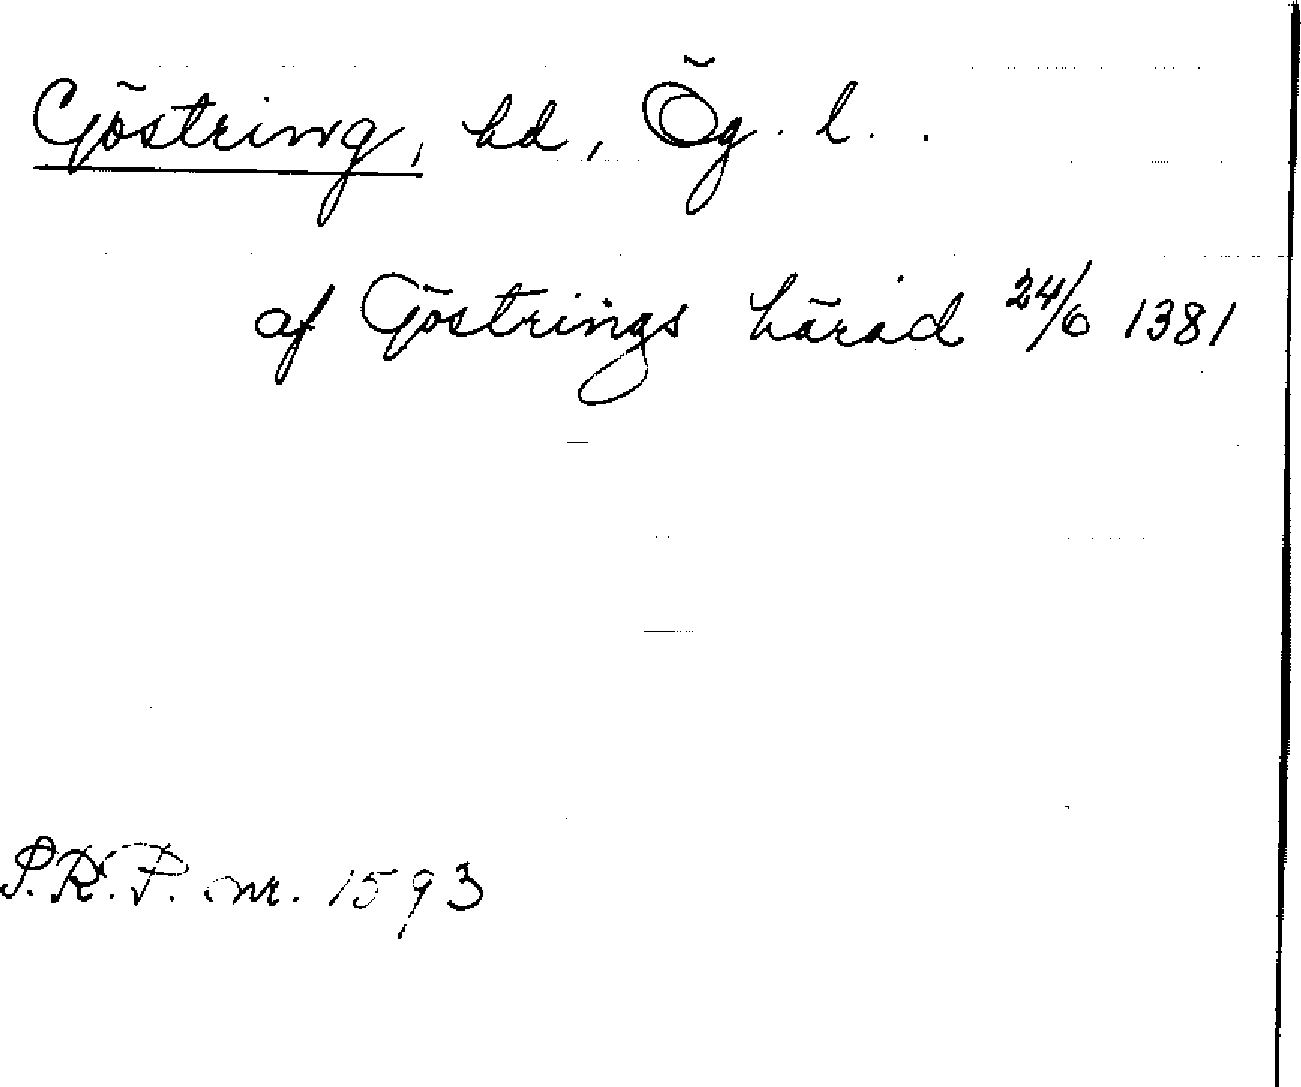 Göstring, hd, Ög. l.
af Göstrings härad 24/6 1381
S.R.P. nr. 1593